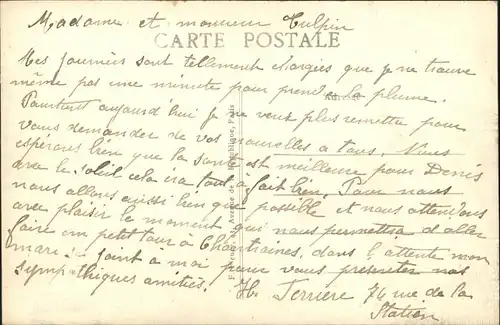 Madame et monsieur Tulpin
CARTE POSTALE
Mes journées sont tellement chargées que je ne trouve
même pas une minute pour prendre la plume.
Pourtant aujourd'hui je ne veux plus remettre pour
vous demander de vos nouvelles à tous. Nous
espérons bien que la santé est meilleure pour Denis
avec le soleil cela ira tout à fait bien. Pour nous
nous allons aussi bien que possible et nous attendons
avec plaisir le moment qui nous permettra d'aller
faire un petit tour à Chartraines. dans l'attente mon
mari se joint à moi pour vous présenter nos
sympathiques amitiés. H. Terrière 74 rue de la
Station
Avenue de la République, Paris